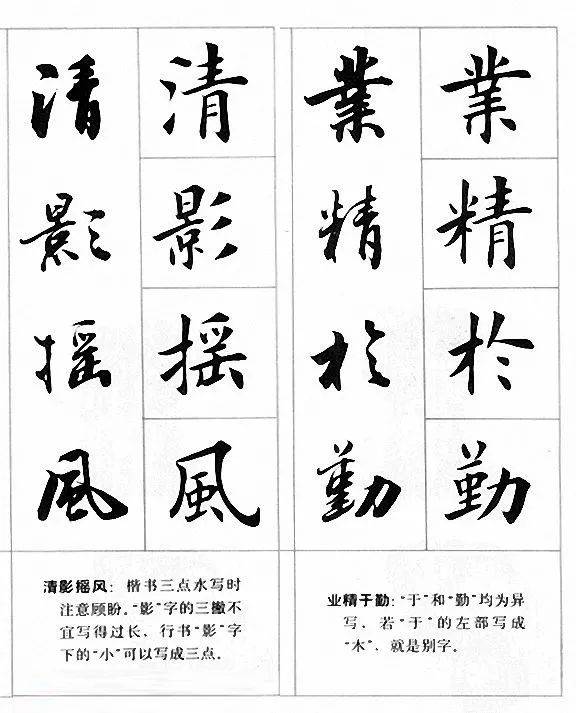 清影摇風
清影摇風
清影摇风：楷书三点水写时
注意顾盼。“影”字的三撇不
宜写得过长，行书“影”字
下的“小”可以写成三点。
業精於勤
業精於勤
业精于勤：“于”和“勤”均为异
写，若“于”的左部写成
“木”，就是别字。